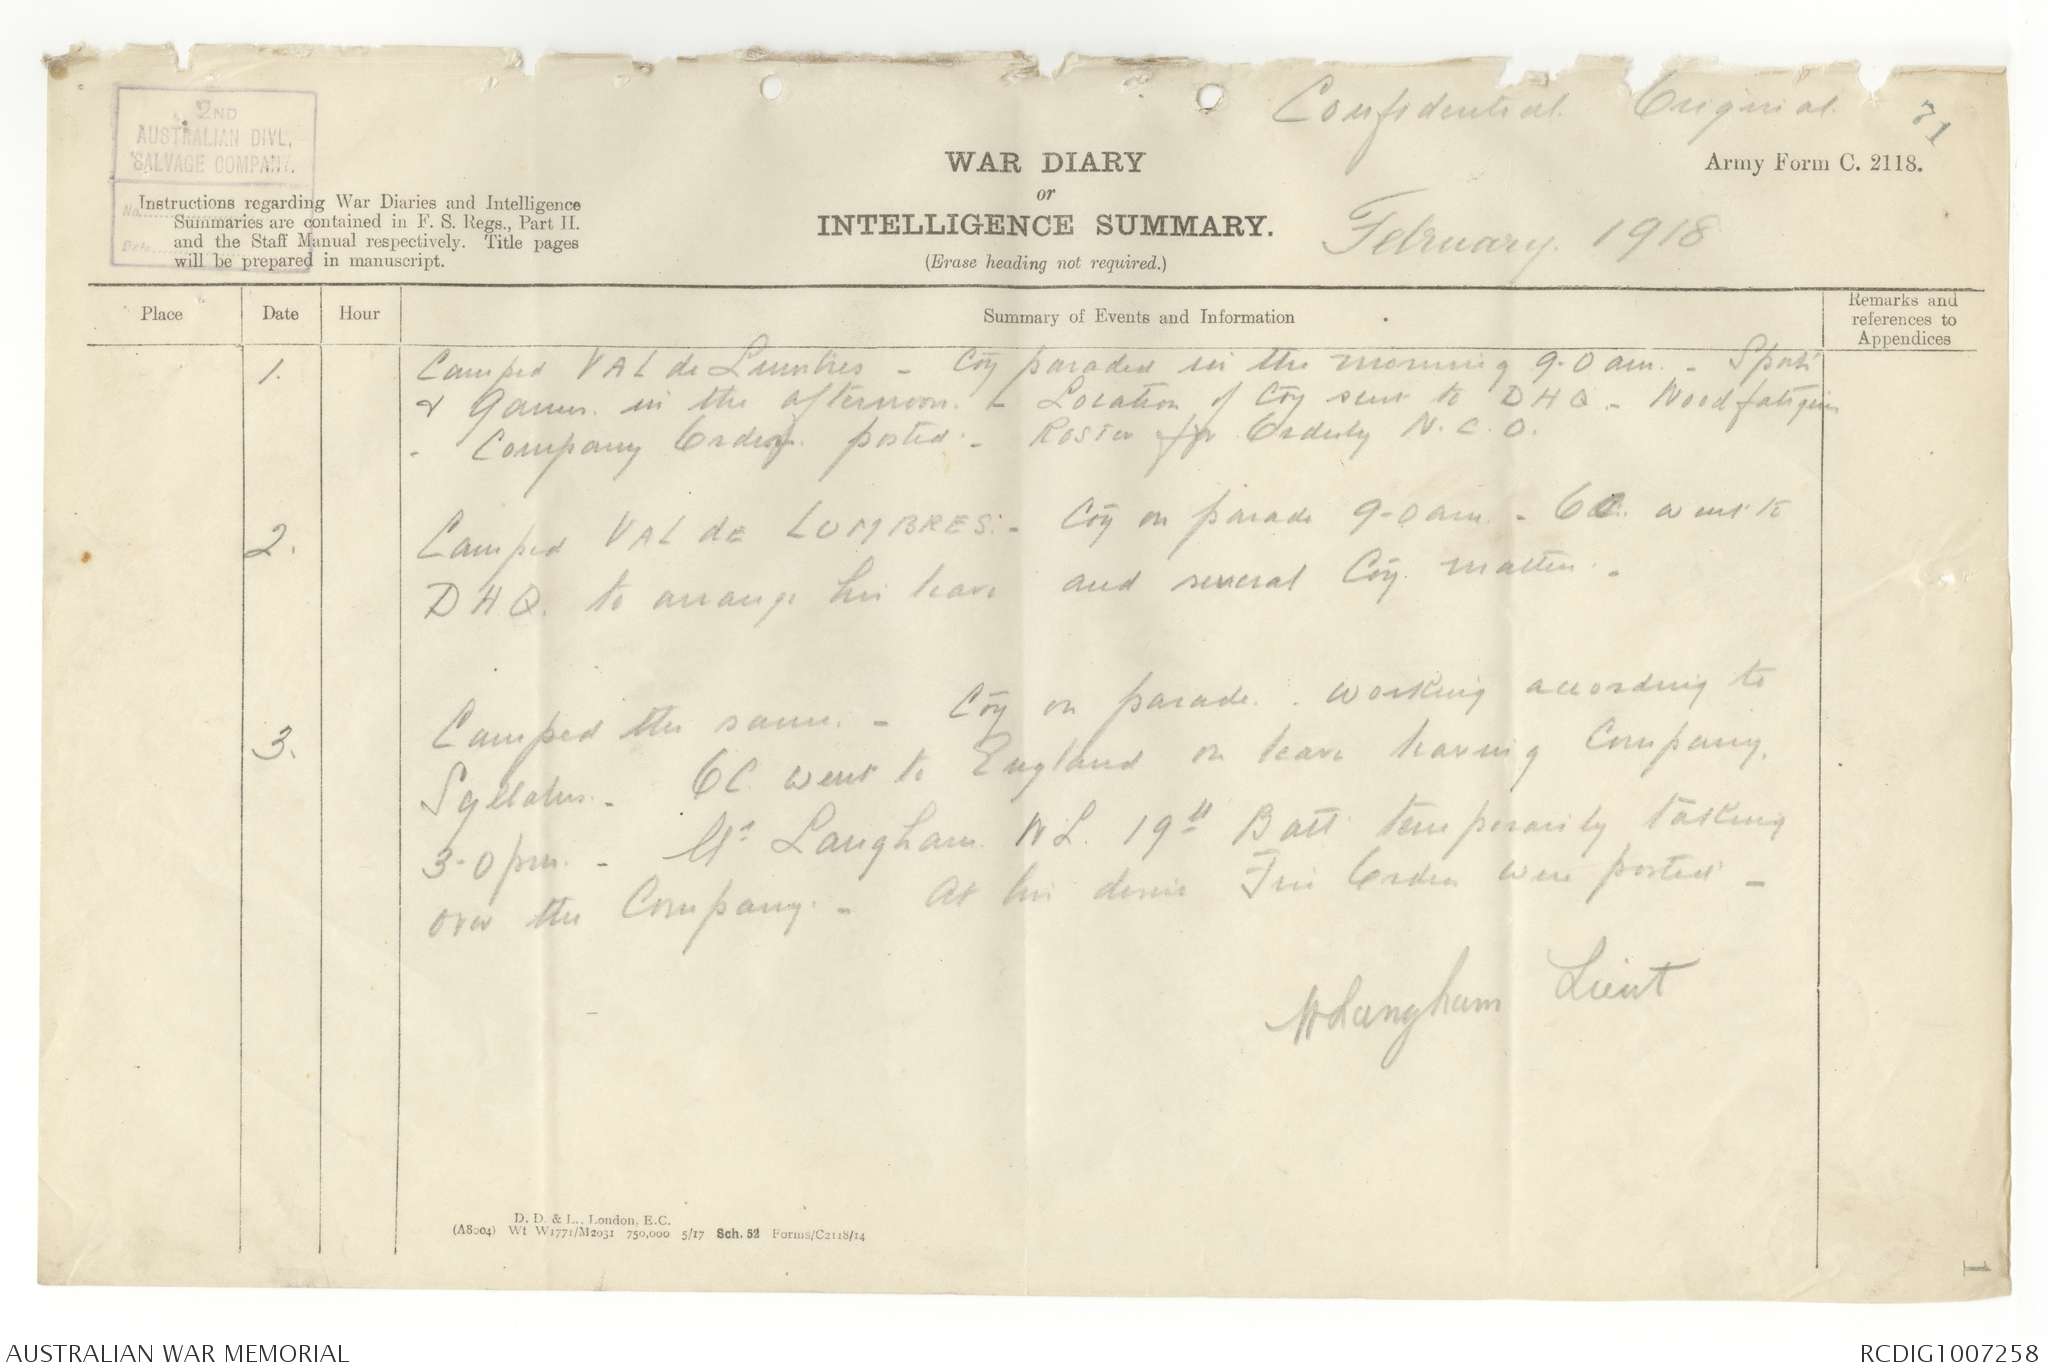 Confidential Original 71
2ND
AUSTRALIAN DIVL.
SALVAGE COMPANY.
No.
Date
WAR DIARY
or
INTELLIGENCE SUMMARY.
(Erase heading not required.)
Army Form C. 2118.
February. 1918
Instructions regarding War Diaries and Intelligence
Summaries are contained in F. S. Regs., Part II.
and the Staff Manual respectively. Title pages
will be prepared in manuscript.
Place Date Hour Summary of Events and Information Remarks and
references to
Appendices
1. Camped VAL de Lumbres - Coy paraded in the morning 9-0 am. - Sports
& Games. in the afternoon. - Location of Coy sent to DHQ - Wood fatigues
- Company Orders. posted. - Roster for Orderly N.C.O.
2. Camped VAL dE LUMBRES. - Coy on parade 9-0 am. - OC. went to
DHQ. to arrange his leave and several Coy. matters. -
3. Camped the same. - Coy on parade. working according to
Syllabus. - OC. went to England on leave leaving Company.
3-0 pm. - Lt. Langham. W L. 19th Batt temporarily taking
over the Company. - At his desire Fire Orders were posted -
WLangham Lieut
D. D. & L., London, E.C.
(A8004) Wt W1771/M2031 750,000 5/17 Sch. 52 Forms/C2118/14
1
AUSTRALIAN WAR MEMORIAL RCDIG1007258